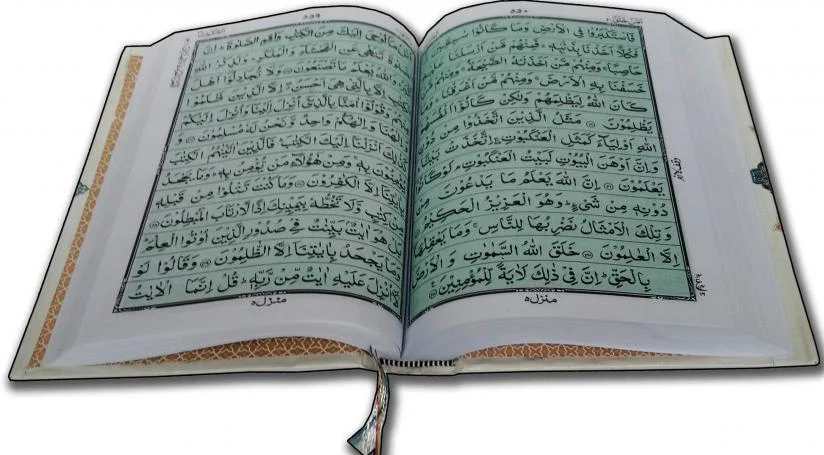 فَاسْتَكْبَرُوْا فِی الْاَرْضِ وَمَا كَانُوْا سٰبِقِيْنَ
فَكُلًّا اَخَذْنَا بِذَنْۢبِهٖ ۚ فَمِنْهُمْ مَّنْ اَرْسَلْنَا
حَاصِبًا ۚ وَمِنْهُمْ مَّنْ اَخَذَتْهُ الصَّيْحَةُ ۚ
خَسَفْنَا بِهِ الْاَرْضَ ۚ وَمِنْهُمْ مَّنْ اَغْرَقْنَا
كَانَ اللّٰهُ لِيَظْلِمَهُمْ وَلٰكِنْ كَانُوْۤا اَنْفُسَهُمْ
يَظْلِمُوْنَ مَثَلُ الَّذِيْنَ اتَّخَذُوْا مِنْ
اللّٰهِ اَوْلِيَآءَ كَمَثَلِ الْعَنْكَبُوْتِ ۚ اِتَّخَذَتْ بَيْتًا
وَاِنَّ اَوْهَنَ الْبُيُوْتِ لَبَيْتُ الْعَنْكَبُوْتِ ۘ
يَعْلَمُوْنَ اِنَّ اللّٰهَ يَعْلَمُ مَا يَدْعُوْنَ مِنْ
دُوْنِهٖ مِنْ شَیْءٍ ؕ وَهُوَ الْعَزِيْزُ الْحَكِيْمُ
وَتِلْكَ الْاَمْثَالُ نَضْرِبُهَا لِلنَّاسِ ۚ وَمَا يَعْقِلُهَاۤ
اِلَّا الْعٰلِمُوْنَ خَلَقَ اللّٰهُ السَّمٰوٰتِ وَ الْاَرْضَ
بِالْحَقِّ ؕ اِنَّ فِیْ ذٰلِكَ لَاٰيَةً لِّلْمُؤْمِنِيْنَ
منزل ٥
مَاۤ اُوْحِیَ اِلَيْكَ مِنَ الْكِتٰبِ وَاَقِمِ الصَّلٰوةَ ؕ اِنَّ
تَنْهٰی عَنِ الْفَحْشَآءِ وَالْمُنْكَرِ ؕ وَلَذِكْرُ اللّٰهِ
اللّٰهُ يَعْلَمُ مَا تَصْنَعُوْنَ وَلَا تُجَادِلُوْۤا اَهْلَ
اِلَّا بِالَّتِیْ هِیَ اَحْسَنُ ۖ اِلَّا الَّذِيْنَ ظَلَمُوْا
وَقُوْلُوْۤا اٰمَنَّا بِالَّذِیْۤ اُنْزِلَ اِلَيْنَا وَاُنْزِلَ اِلَيْكُمْ
وَاِلٰهُنَا وَاِلٰهُكُمْ وَاحِدٌ وَّنَحْنُ لَهٗ مُسْلِمُوْنَ
اَنْزَلْنَاۤ اِلَيْكَ الْكِتٰبَ ؕ فَالَّذِيْنَ اٰتَيْنٰهُمُ الْكِتٰبَ
يُؤْمِنُوْنَ بِهٖ ۚ وَمِنْ هٰۤؤُلَآءِ مَنْ يُّؤْمِنُ بِهٖ ؕ وَمَا يَجْحَدُ
بِاٰيٰتِنَاۤ اِلَّا الْكٰفِرُوْنَ وَمَا كُنْتَ تَتْلُوْا مِنْ قَبْلِهٖ
مِنْ كِتٰبٍ وَّلَا تَخُطُّهٗ بِيَمِيْنِكَ اِذًا لَّارْتَابَ الْمُبْطِلُوْنَ
بَلْ هُوَ اٰيٰتٌۢ بَيِّنٰتٌ فِیْ صُدُوْرِ الَّذِيْنَ اُوْتُوا الْعِلْمَ ؕ
وَمَا يَجْحَدُ بِاٰيٰتِنَاۤ اِلَّا الظّٰلِمُوْنَ وَقَالُوْا لَوْ
لَاۤ اُنْزِلَ عَلَيْهِ اٰيٰتٌ مِّنْ رَّبِّهٖ ؕ قُلْ اِنَّمَا الْاٰيٰتُ
منزل ٥